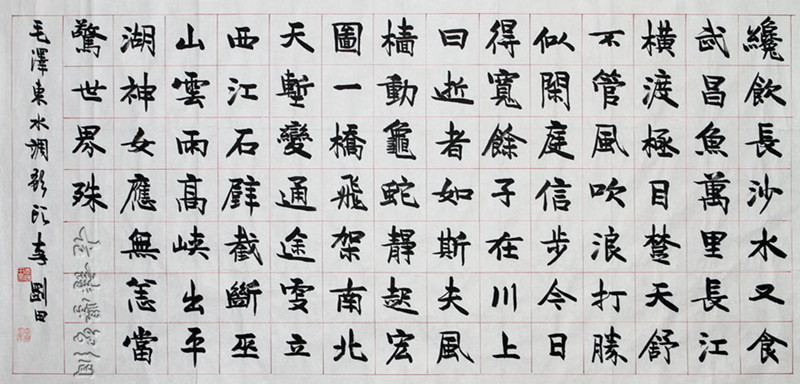 纔飲長沙水又食
武昌魚萬里長江
橫渡極目楚天舒
不管風吹浪打勝
似閑庭信步今日
得寬餘子在川上
曰逝者如斯夫風
檣動龜蛇靜起宏
圖一橋飛架南北
天塹變通途更立
西江石壁截斷巫
山雲雨高峽出平
湖神女應無恙當
驚世界殊
毛澤東水調歌頭 劉田